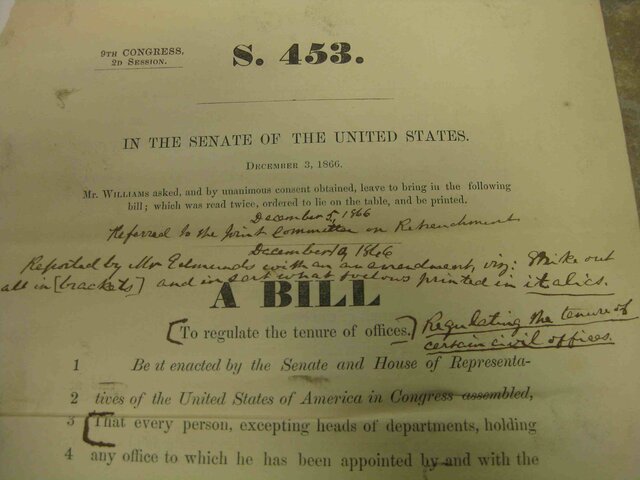 9TH CONGRESS,
2D SESSION.
S. 453.
IN THE SENATE OF THE UNITED STATES.
DECEMBER 3, 1866.
Mr. WILLIAMS asked, and by unanimous consent obtained, leave to bring in the following
bill; which was read twice, ordered to lie on the table, and be printed.
December 5, 1866
Referred to the Joint Committee on Retrenchment
December 10, 1866
Reported by Mr Edmunds with an an amendment, viz: Strike out
all in [brackets] and insert what follows printed in italics.
A BILL
[To regulate the tenure of offices.] Regulating the tenure of
certain civil offices.
1 Be it enacted by the Senate and House of Representa-
2 tives of the United States of America in Congress assembled,
3 [That every person, excepting heads of departments, holding
4 any office to which he has been appointed by and with the